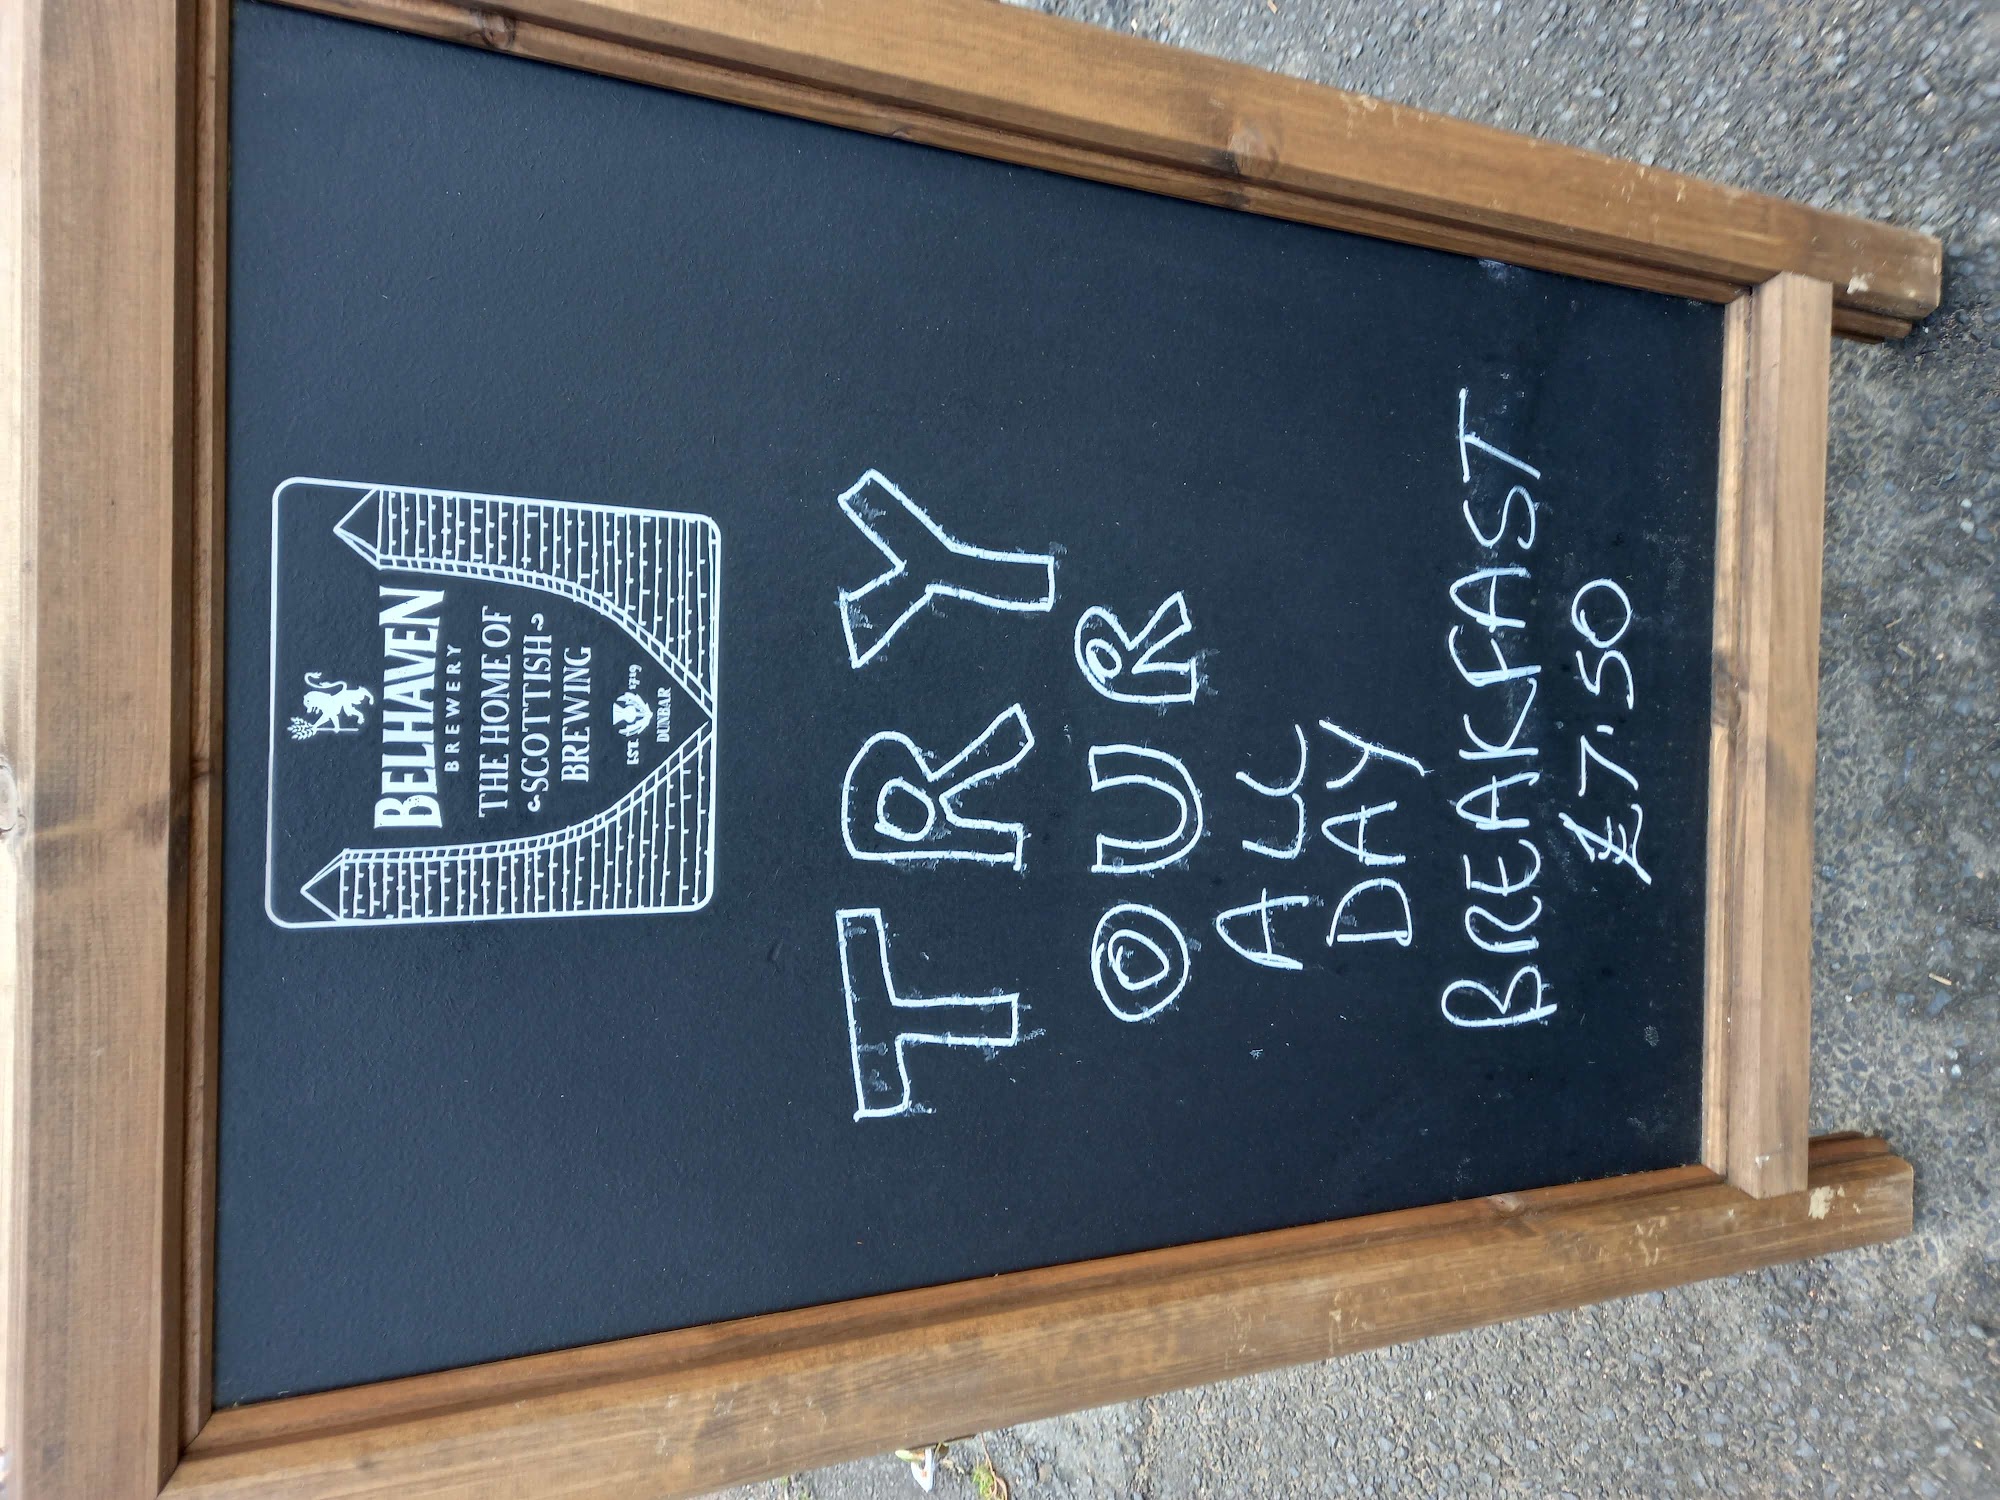 BELHAVEN
BREWERY
THE HOME OF
SCOTTISH
BREWING
EST. 1719
DUNBAR
TRY
OUR
ALL
DAY
BREAKFAST
£7.50